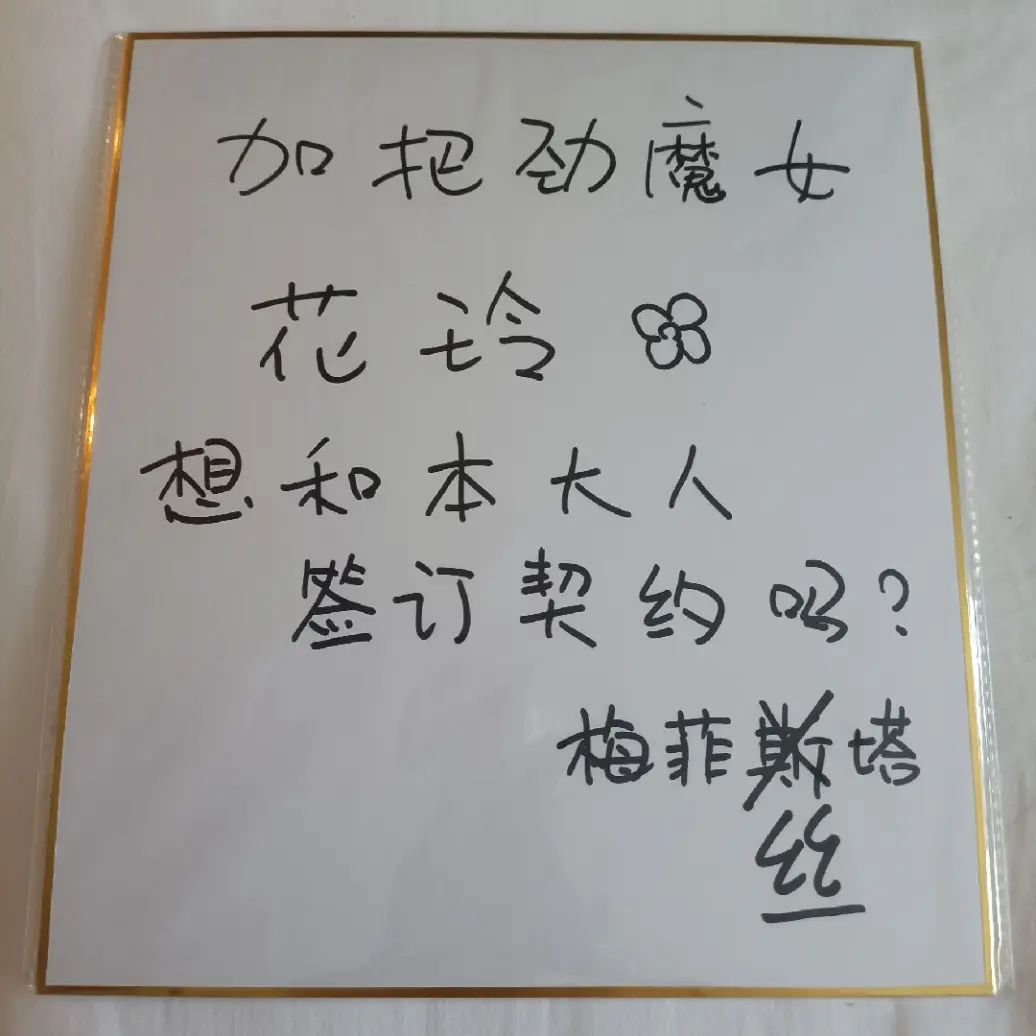 加把劲魔女
花玲
想和本大人
签订契约吗?
梅菲斯塔
丝